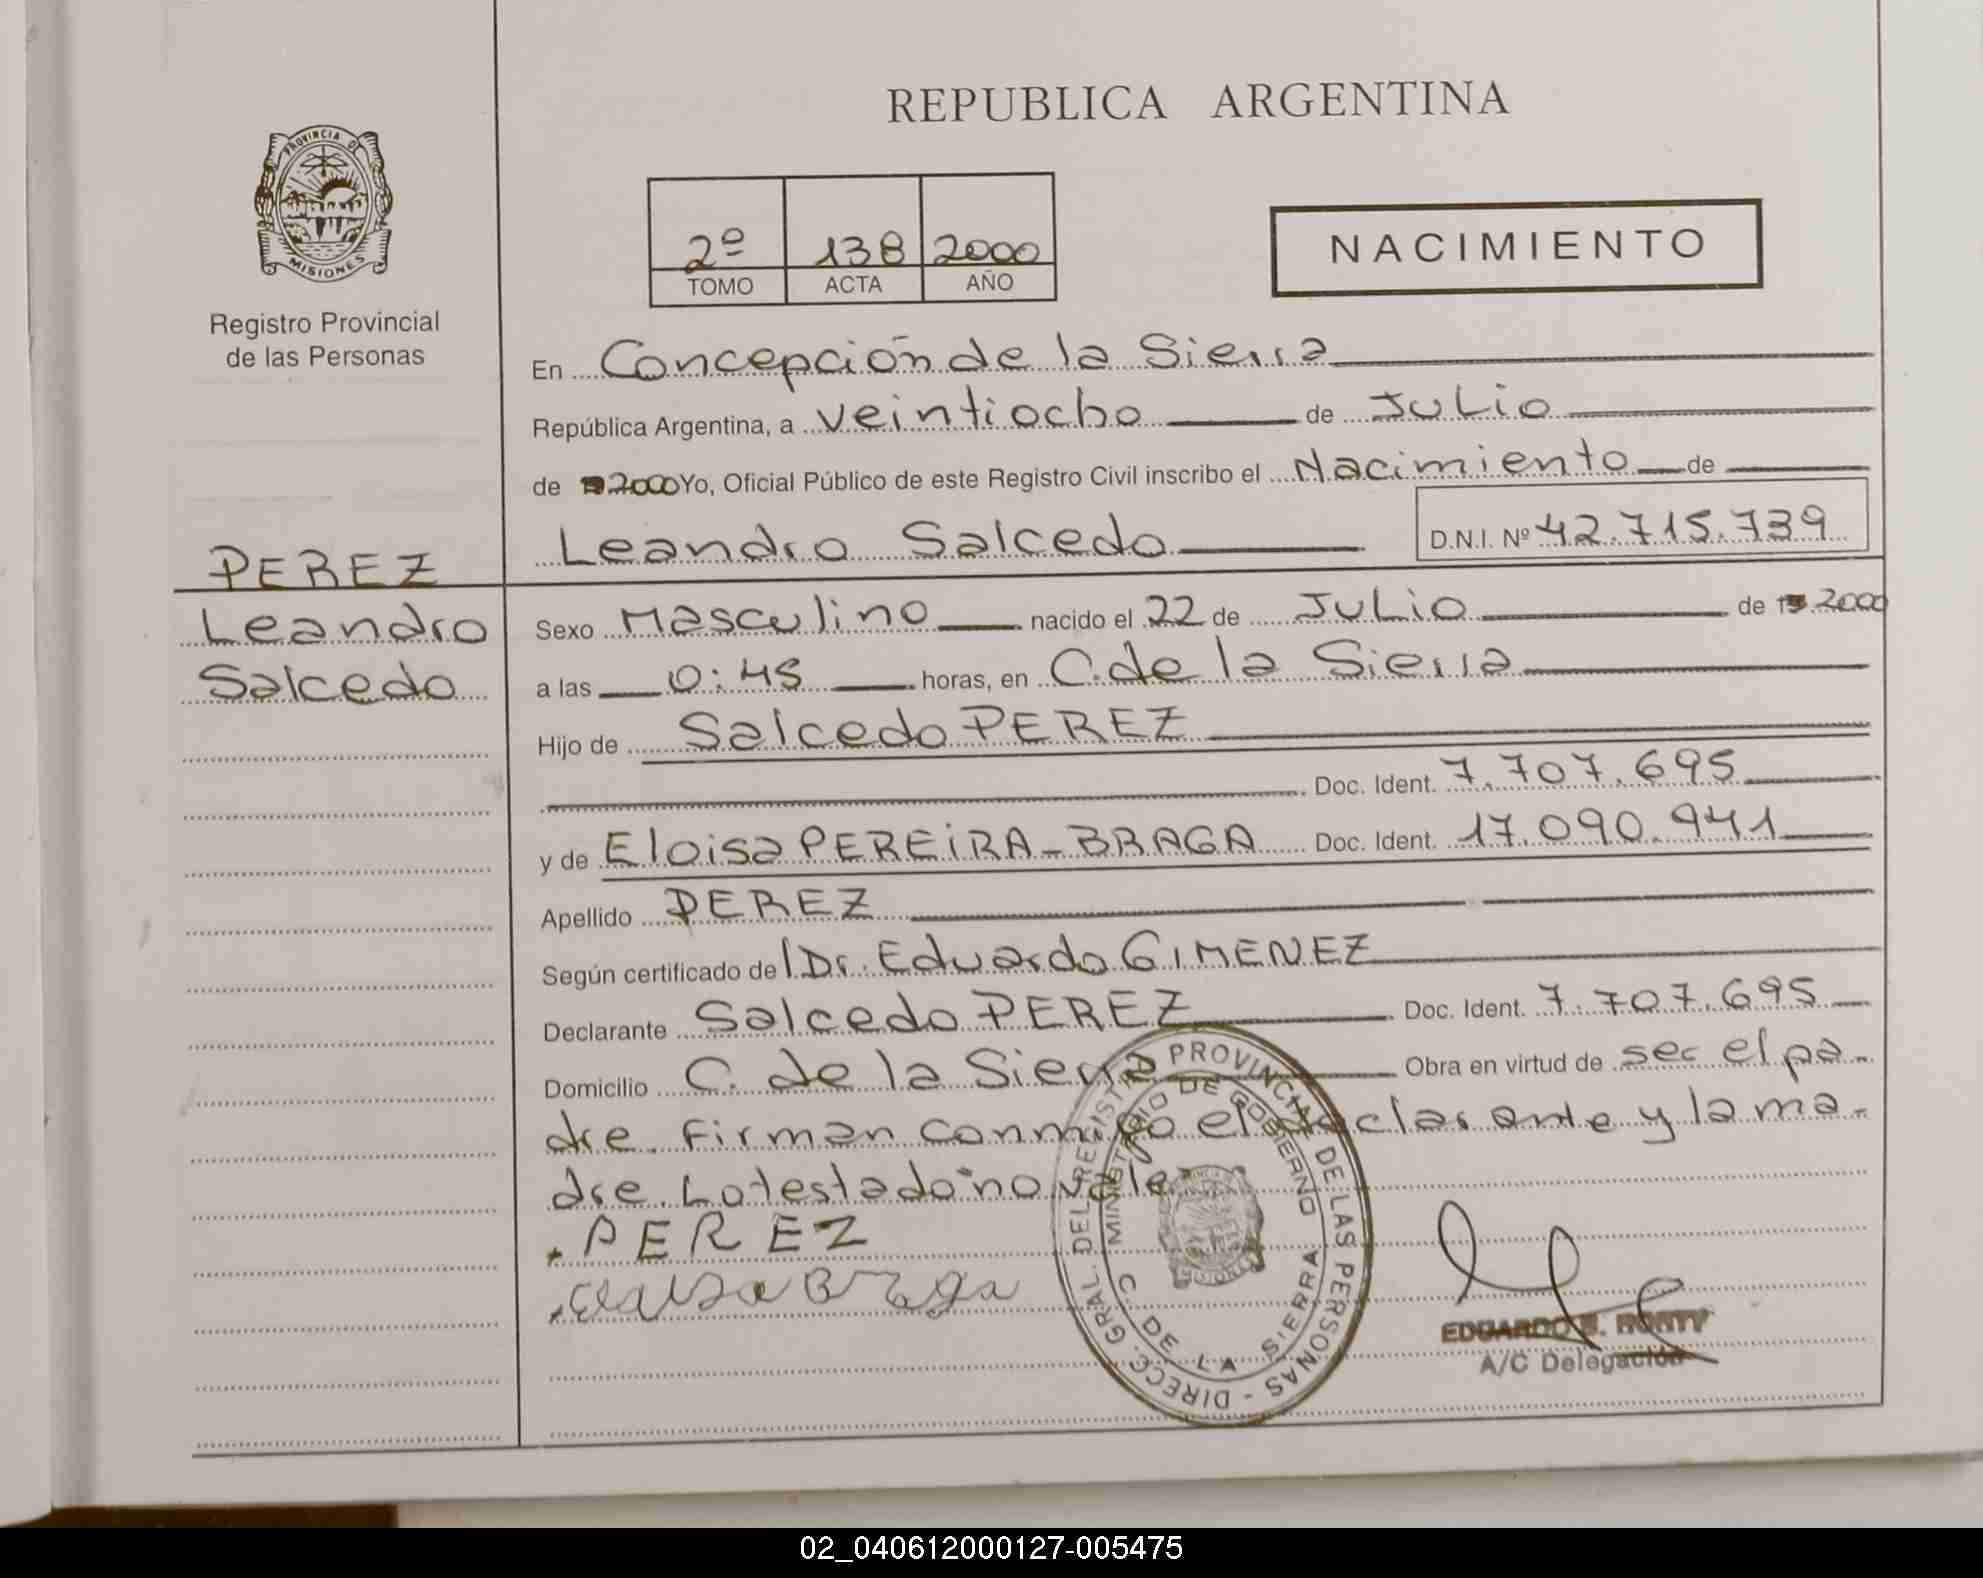 REPUBLICA ARGENTINA
PROVINCIA DE
MISIONES
Registro Provincial
de las Personas
2º 138 2000
TOMO ACTA AÑO
NACIMIENTO
En Concepción de la Sierra
República Argentina, a veintiocho de Julio
de 2000 Yo, Oficial Público de este Registro Civil inscribo el Nacimiento de
Leandro Salcedo D.N.I. Nº 42.715.739
PEREZ
Leandro
Salcedo
Sexo Masculino nacido el 22 de Julio de 2000
a las 0:45 horas, en C. de la Sierra
Hijo de Salcedo PEREZ
Doc. Ident. 7.707.695
y de Eloisa PEREIRA-BRAGA Doc. Ident. 17.090.941
Apellido PEREZ
Según certificado de l Dr. Eduardo GIMENEZ
Declarante Salcedo PEREZ Doc. Ident. 7.707.695
Domicilio C. de la Sierra Obra en virtud de ser el pa-
dre. Firman conmigo el declarante y la ma-
dre. Lo testado no vale
. PEREZ
Braga
DIRECC. GRAL. DEL REGISTRO PROVINCIAL DE LAS PERSONAS -
MINISTERIO DE GOBIERNO
C. DE LA SIERRA
A/C Delegación
02_040612000127-005475